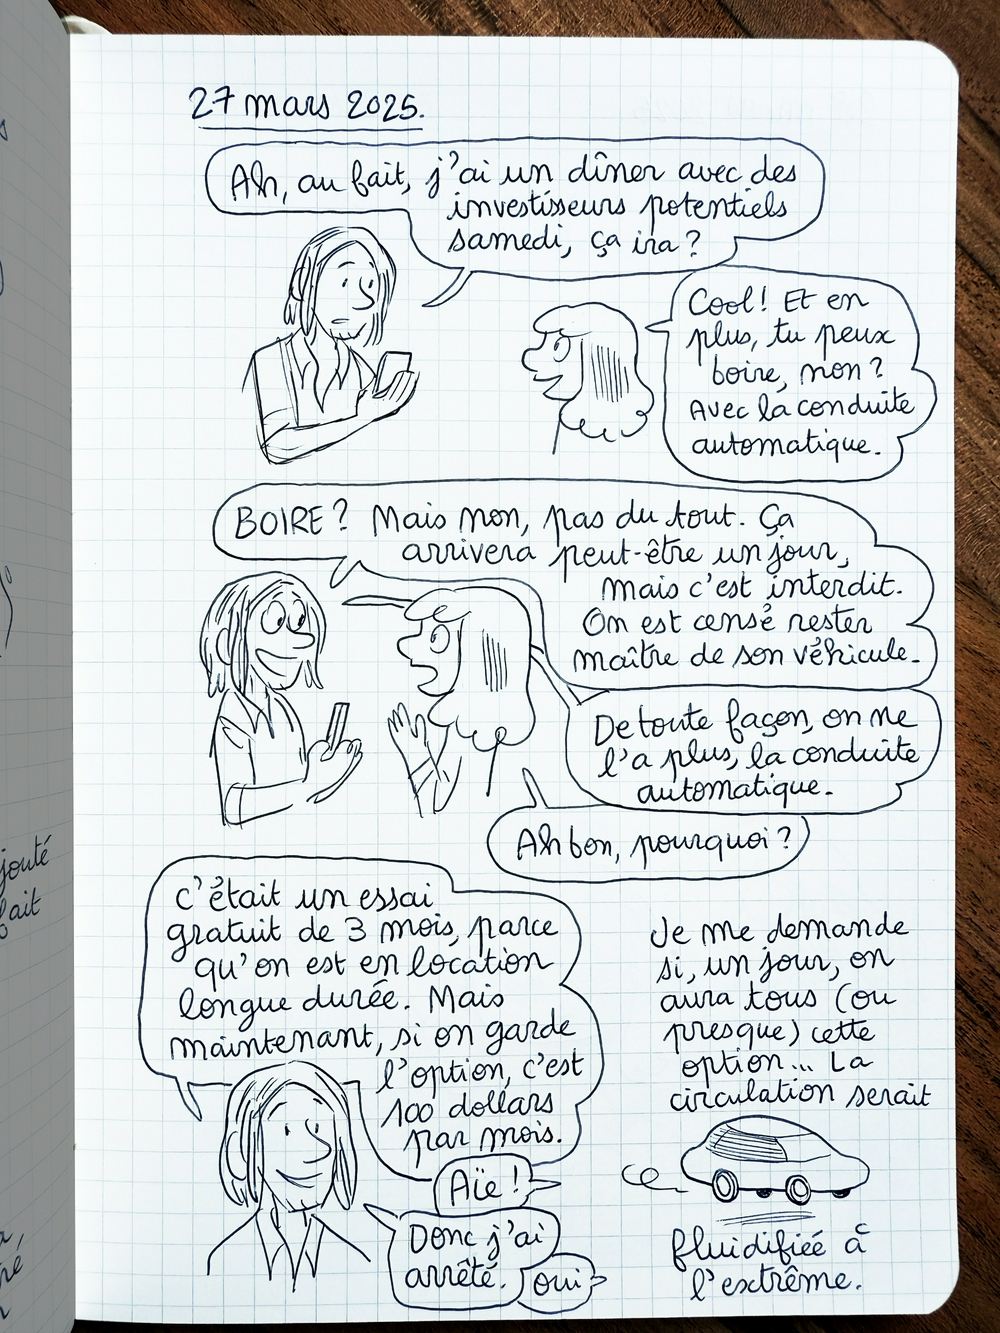 27 mars 2025.
Ah, au fait, j'ai un dîner avec des
investisseurs potentiels
samedi, ça ira ?
Cool ! Et en
plus, tu peux
boire, non ?
Avec la conduite
automatique.
BOIRE ? Mais non, pas du tout. Ça
arrivera peut-être un jour,
mais c'est interdit.
On est censé rester
maître de son véhicule.
De toute façon, on ne
l'a plus, la conduite
automatique.
Ah bon, pourquoi ?
C'était un essai
gratuit de 3 mois, parce
qu'on est en location
longue durée. Mais
maintenant, si on garde
l'option, c'est
100 dollars
par mois.
Aïe !
Donc j'ai
arrêté.
Oui
Je me demande
si, un jour, on
aura tous (ou
presque) cette
option... La
circulation serait
fluidifiée à
l'extrême.
jouté
fait